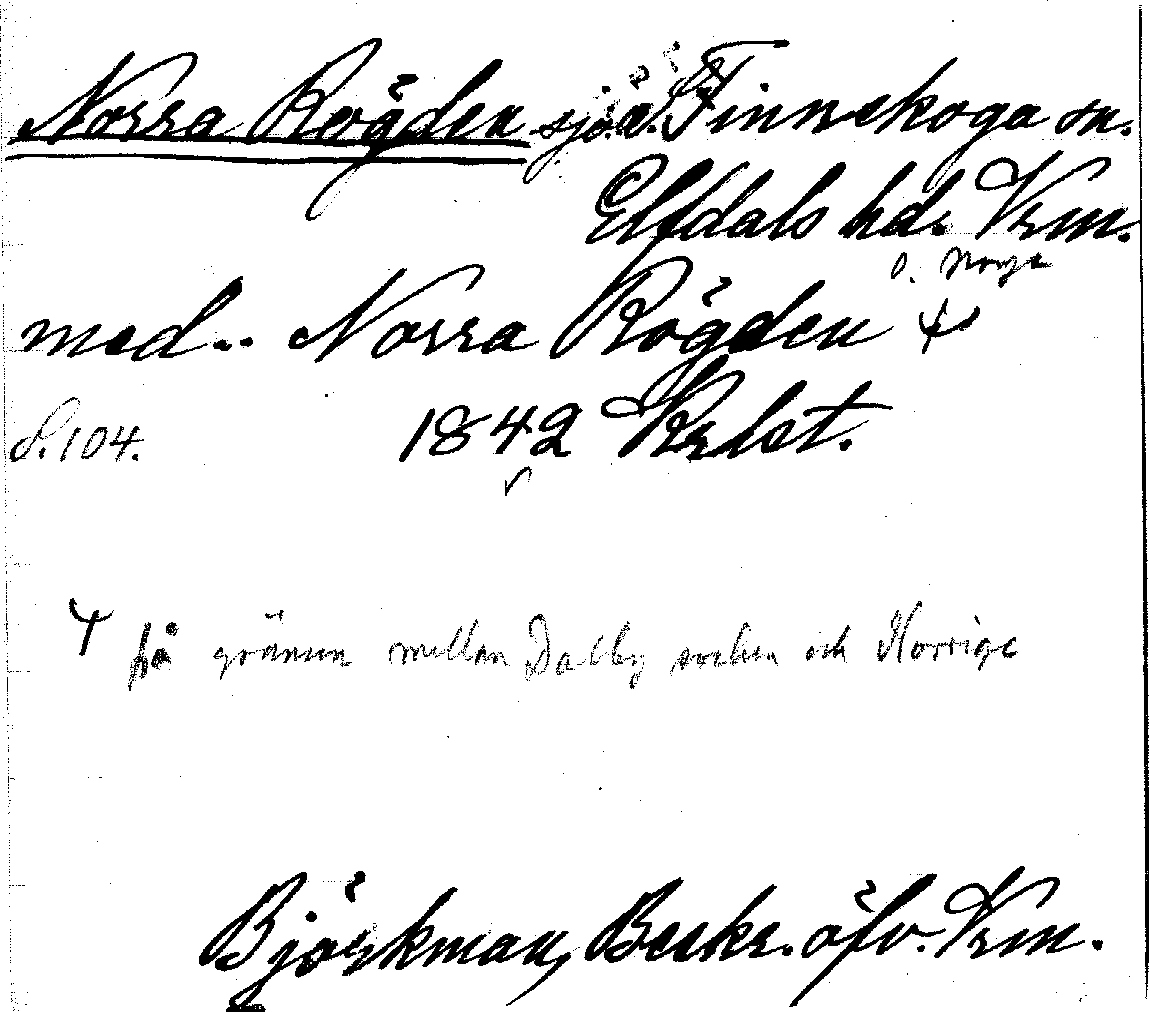 Norra Rögden sjö. Finnskoga sn.
Elfdals hd. Vrm.
o. Norge
med.. Norra Rögden
S. 104. 1842 Krlst.
på gränsen mellan Dalby socken och Norrige
Björkman, Beskr. öfv. Vrm.